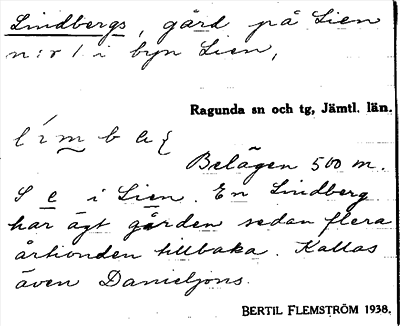 Lindbergs, gård på Lien
n:r 1 i byn Lien,
Ragunda sn och tg, Jämtl. län.
Belägen 500 m.
S e i Lien. En Lindberg
har ägt gården sedan flera
årtionden tillbaka. Kallas
även Danieljons.
BERTIL FLEMSTRÖM 1938.